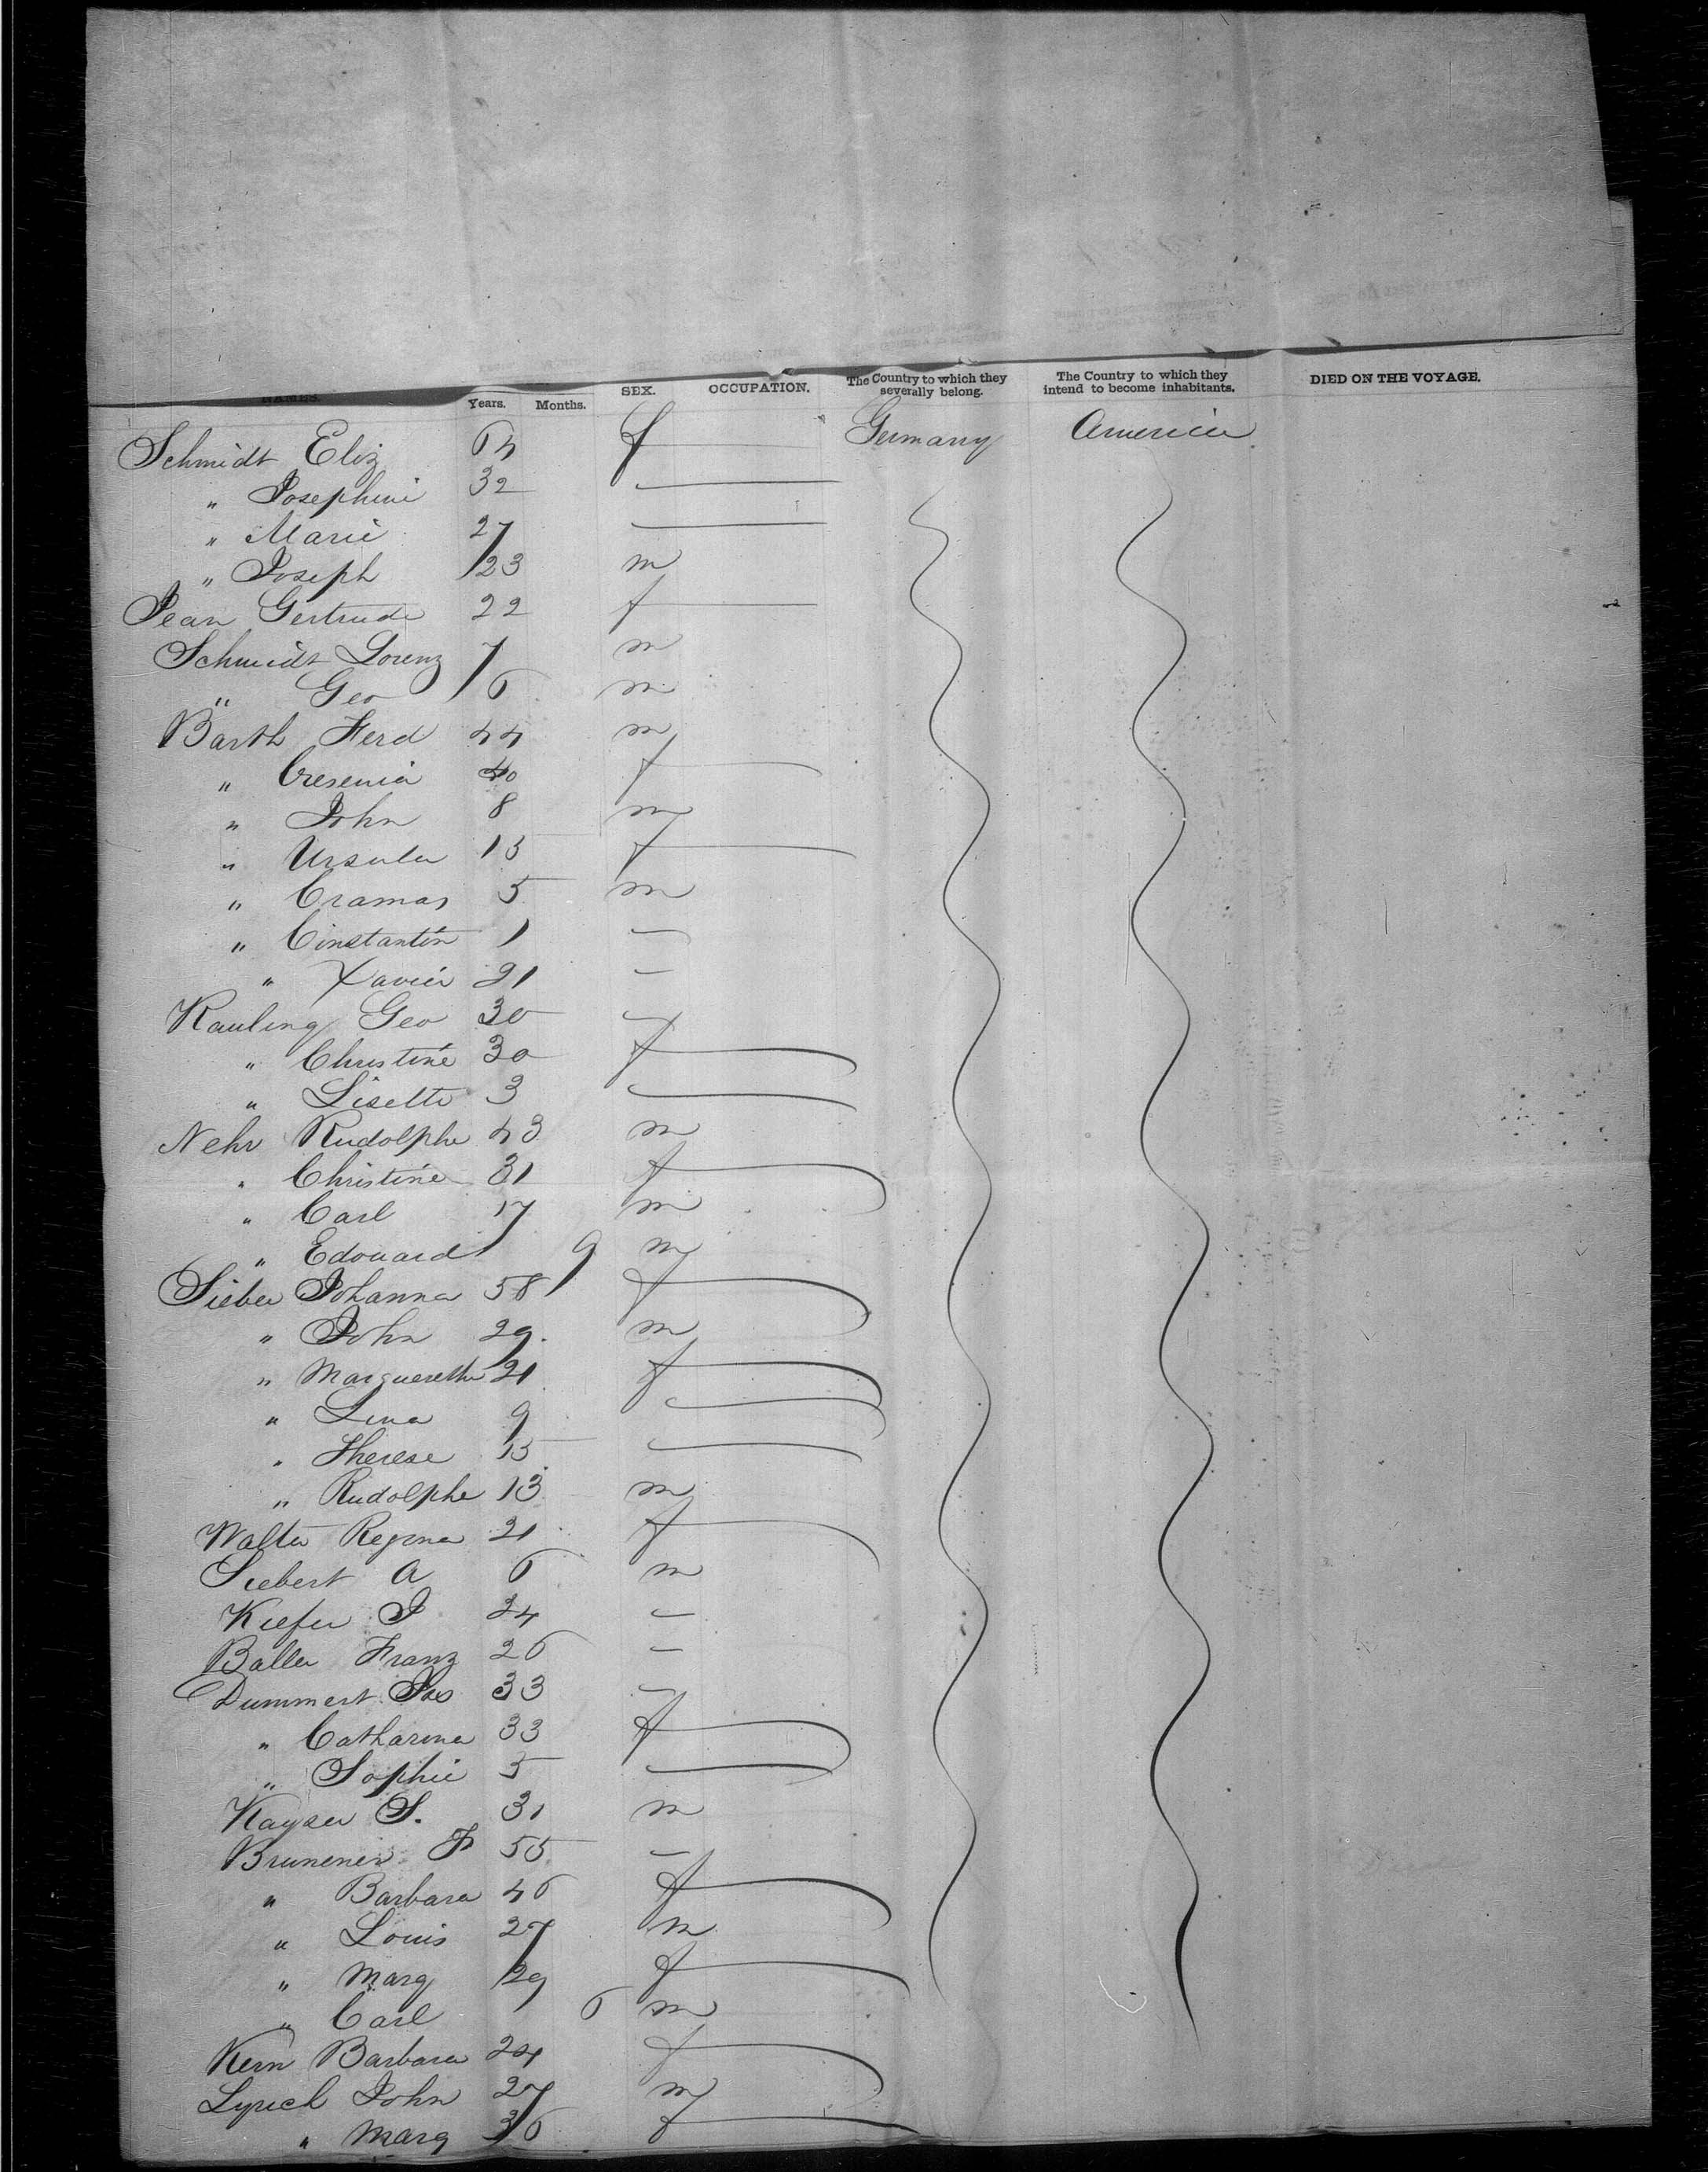 NAMES. Years. Months. SEX. OCCUPATION. The Country to which they severally belong. The Country to which they intend to become inhabitants. DIED ON THE VOYAGE.
Schmidt Eliz 64 f Germany America
" Josephine 32
" Marie 27
" Joseph 23 m
Jean Gertrude 22 f
Schmidt Lorenz 7 m
" Geo 6 m
Barth Ferd 44 m
" Cresenia 40 f
" John 8 m
" Ursula 13 f
" Cramas 5 m
" Constantin 1 —
" Xavier 21 —
Kauling Geo 30 —
" Christine 30 f
" Lisette 3
Nehr Rudolphe 43 m
" Christine 31 f
" Carl 17 m
" Edouard 9 m
Sieber Johanna 58 f
" John 29. m
" Marguerethe 21 f
" Lina 9
" Therese 15
" Rudolphe 13 m
Walter Regina 21 f
Siebert A 6 m
Kiefer J 24 —
Baller Franz 26 —
Dummert Jos 33 —
" Catharina 33 f
" Sophie 5
Kayser S. 31 m
Brunener F 55 —
" Barbara 46 f
" Louis 27 m
" Marg 29 f
" Carl 6 m
Kern Barbara 24 f
Lyrich John 27 m
" Marg 36 f